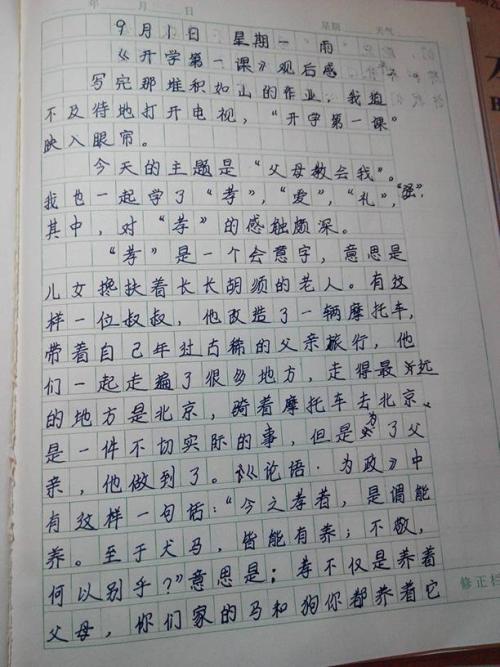 年 月 日 星期 天气
9月1日 星期一 雨
《开学第一课》观后感
写完那堆积如山的作业，我迫
不及待地打开电视，“开学第一课”
映入眼帘。
今天的主题是“父母教会我”。
我也一起学了“孝”，“爱”，“礼”，“强”，
其中，对“孝”的感触颇深。
“孝”是一个会意字，意思是
儿女搀扶着长长胡须的老人。有这
样一位叔叔，他改造了一辆摩托车，
带着自己年过古稀的父亲旅行，他
们一起走遍了很多地方，走得最远
的地方是北京，骑着摩托车去北京，
是一件不切实际的事，但是为了父
亲，他做到了。《论语·为政》中
有这样一句话：“今之孝者，是谓能
养。至于犬马，皆能有养；不敬，
何以别乎？”意思是：孝不仅是养着
父母，你们家的马和狗你都养着它
修正栏